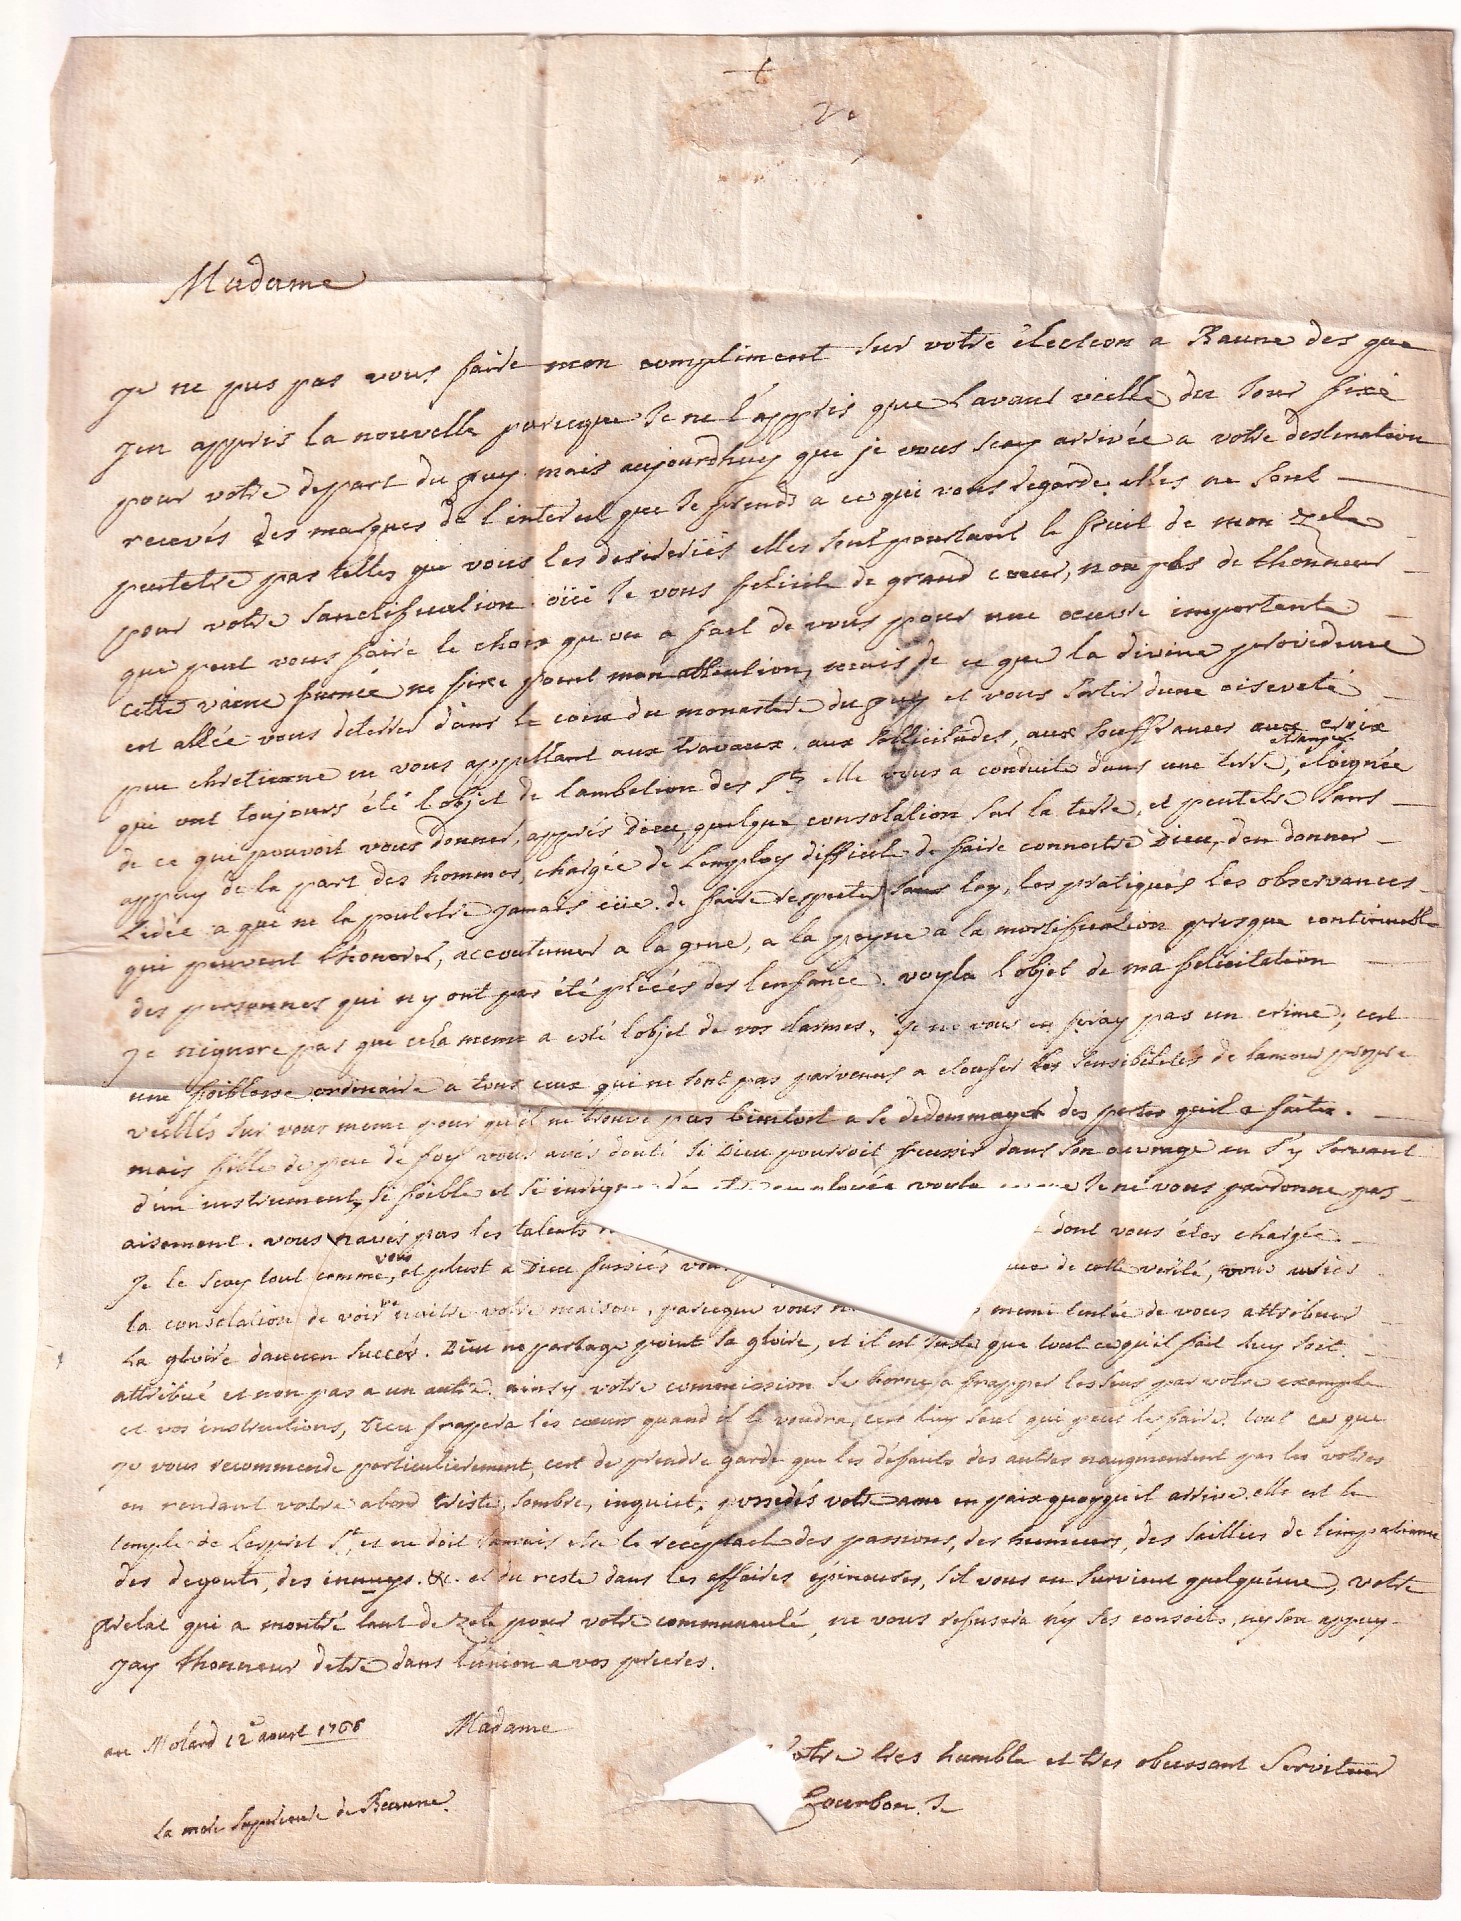 Madame
je ne pus pas vous faire mon compliment sur votre élection a Baune des que
jen appris la nouvelle parceque Je ne l'appris que lavant vieille du Jour fixé
pour votre depart du puy. mais aujourdhuy que je vous scay arrivée a votre destination
recevés des marques de l'interest que Je prends a ce qui vous regarde. elles ne sont
peutetre pas telles que vous les desireriés elles sont pourtant le fruit de mon zele
pour votre sanctification. oüi Je vous felicite de grand coeur, non pas de lhonneur
que peut vous faire le choix qu'on a fait de vous pour une oeuvre importante
cette vaine fumée ne fixe point mon attention, mais de ce que la divine providence
est allée vous deterrer dans le coin du monastere du puy et vous sortir dune oiseveté
peu chretienne en vous appellant aux travaux. aux sollicitudes, aux souffrances aux croix
qui ont toujours été l'objet de lambition des Sts elle vous a conduite dans une terre etrangere, eloignée
de ce qui pouvoit vous donner, apprés Dieu, quelque consolation sur la terre, et peutetre sans
appuy de la part des hommes, chargée de lemploy difficile de faire connoctre Dieu, den donner
Lidée a qui ne la peutetre jamais eüe. de faire respecter sa loy, les pratiques les observances
qui peuvent lhonorer, accoutumer a la gene, a la peyne a la mortification presque continuelle
des personnes qui ny ont pas été pliées des lenfance. voyla l'objet de ma felicitation
je nignore pas que cela meme a esté lobjet de vos larmes, je ne vous en feray pas un crime; cest
une foiblesse ordinaire a tous ceux qui ne sont pas parvenus a etoufer les sensibilités de lamour propre
veillés sur vous meme pour qu'il ne trouve pas bientost a se dedommager des pertes quil a faites.
mais fille de peu de foy vous avés douté si Dieu pourroit reussir dans son ouvrage en s'y servant
d'un instrument si foible et si indigne d'etre employée voyla ce que Je ne vous pardonne pas
aisement. vous navés pas les talents dont vous étes chargée
je le scay tout comme vous, et plust a Dieu fussiés vous de cette verité, vous auriés
la consolation de voir naitre votre maison, parceque vous meme tentée de vous attribuer
la gloire daucun succés. Dieu ne partage point sa gloire, et il est Juste que tout ce qu'il fait luy soit
attribué et non pas a un autre. ainsy votre commission se borne a frapper les sens par votre exemple
et vos instructions, Dieu frapera les coeurs quand il le voudra, cest luy seul qui peut le faire. tout ce que
je vous recommende particulierement, cest de prendre garde que les défauts des autres naugmentent pas les votres
en rendant votre abord triste, sombre, inquiet, possedés votre ame en paix quoyquil arrive. elle est le
temple de Lesprit St, et ne doit Jamais etre le receptacle des passions, des humeurs, des saillies de limpatience
des degouts, des ennuys. &c. et du reste dans les affaires épineuses, s'il vous en survient quelquune, votre
prelat qui a montré tant de zele pour votre communauté, ne vous refusera ny ses conseils, ny son appuy
Jay lhonneur detre dans lunion a vos prieres.
Madame
au Molard 12e aoust 1766
votre tres humble et tres obeissant Serviteur
Bourbon. J.
La mere Superieure de Beaune.